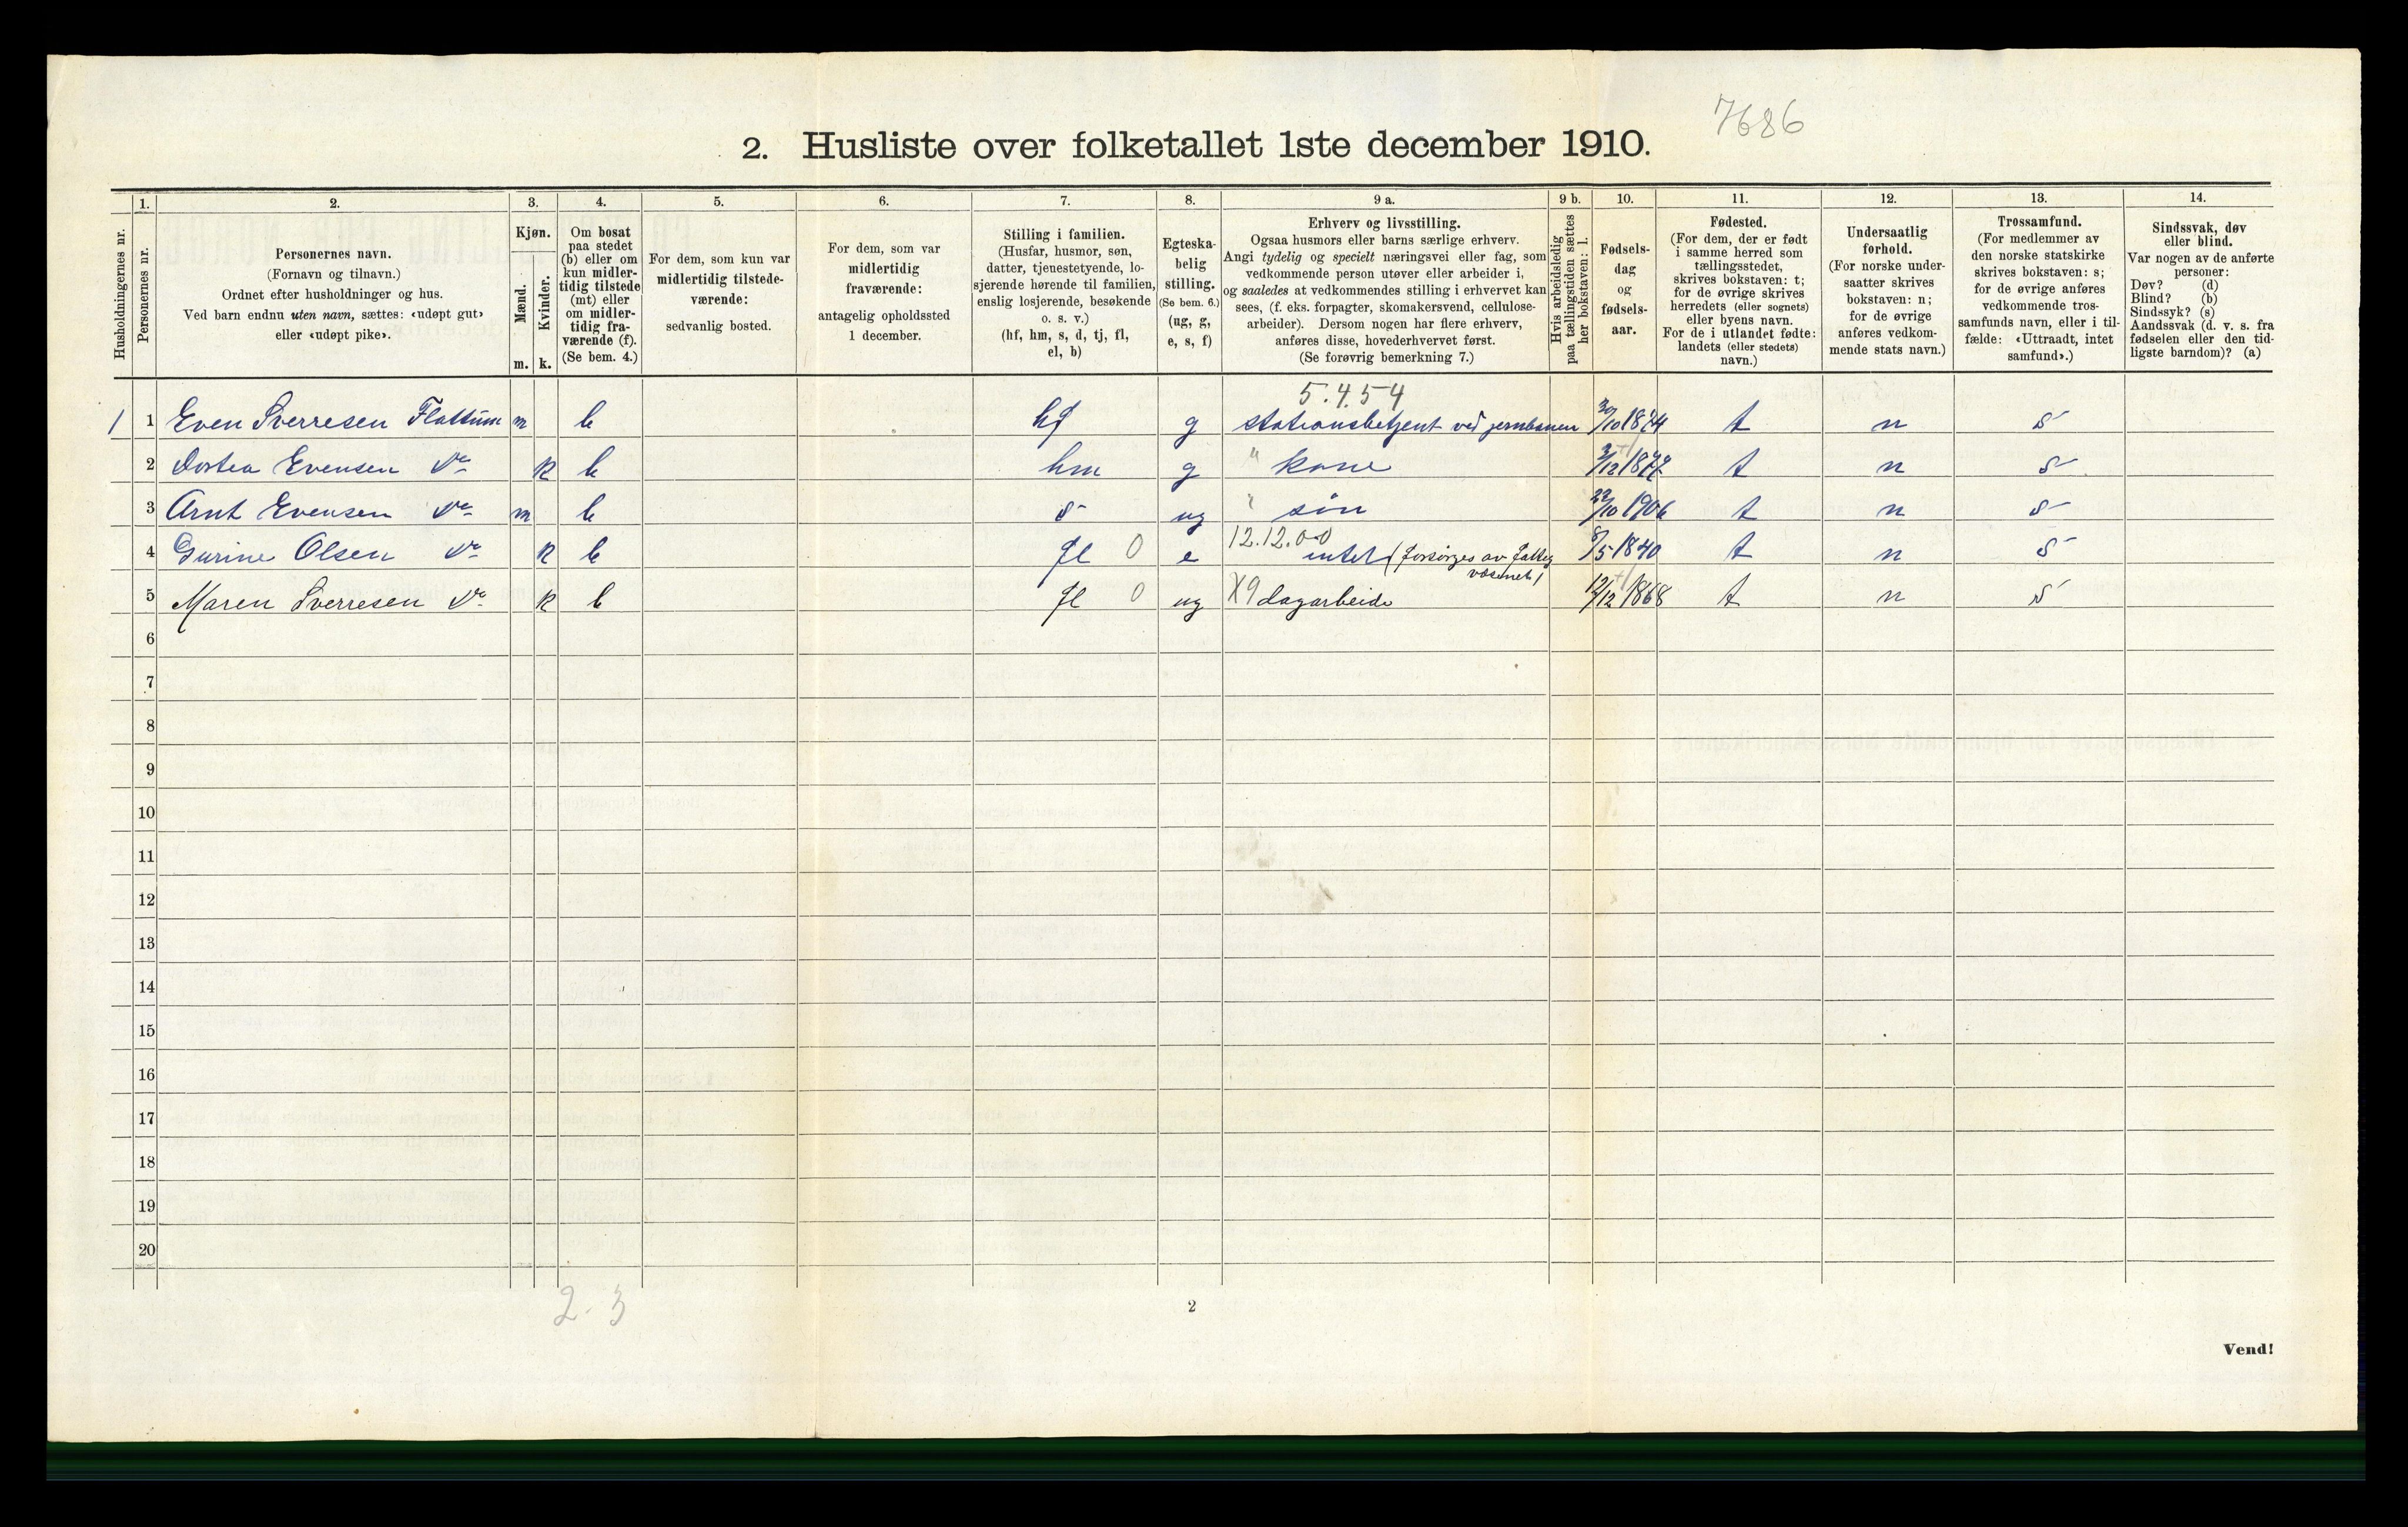 7686
2. Husliste over folketallet 1ste december 1910.
Husholdningernes nr.
1.
Personernes nr.
2.
Personernes navn.
(Fornavn og tilnavn.)
Ordnet efter husholdninger og hus.
Ved barn endnu uten navn, sættes: «udøpt gut»
eller «udøpt pike».
3.
Kjøn.
Mænd.
Kvinder.
m. k.
4.
Om bosat
paa stedet
(b) eller om
kun midler-
tidig tilstede
(mt) eller
om midler-
tidig fra-
værende (f).
(Se bem. 4.)
5.
For dem, som kun var
midlertidig tilstede-
værende:
sedvanlig bosted.
6.
For dem, som var
midlertidig
fraværende:
antagelig opholdssted
1 december.
7.
Stilling i familien.
(Husfar, husmor, søn,
datter, tjenestetyende, lo-
sjerende hørende til familien,
enslig losjerende, besøkende
o. s. v.)
(hf, hm, s, d, tj, fl,
el, b)
8.
Egteska-
belig
stilling.
(Se bem. 6.)
(ug, g,
e, s, f)
9 a.
Erhverv og livsstilling.
Ogsaa husmors eller barns særlige erhverv.
Angi tydelig og specielt næringsvei eller fag, som
vedkommende person utøver eller arbeider i,
og saaledes at vedkommendes stilling i erhvervet kan
sees, (f. eks. forpagter, skomakersvend, cellulose-
arbeider). Dersom nogen har flere erhverv,
anføres disse, hovederhvervet først.
(Se forøvrig bemerkning 7.)
9 b.
Hvis arbeidsledig
paa tællingstiden sættes
her bokstaven: l.
10.
Fødsels-
dag
og
fødsels-
aar.
11.
Fødested.
(For dem, der er født
i samme herred som
tællingsstedet,
skrives bokstaven: t;
for de øvrige skrives
herredets (eller sognets)
eller byens navn.
For de i utlandet fødte:
landets (eller stedets)
navn.)
12.
Undersaatlig
forhold.
(For norske under-
saatter skrives
bokstaven: n;
for de øvrige
anføres vedkom-
mende stats navn.)
13.
Trossamfund.
(For medlemmer av
den norske statskirke
skrives bokstaven: s;
for de øvrige anføres
vedkommende tros-
samfunds navn, eller i til-
fælde: «Uttraadt, intet
samfund».)
14.
Sindssvak, døv
eller blind.
Var nogen av de anførte
personer:
Døv? (d)
Blind? (b)
Sindssyk? (s)
Aandssvak (d. v. s. fra
fødselen eller den tid-
ligste barndom)? (a)
5.4.54
1 1 Even Sverresen Flattum m b hf g stationsbetjent ved jernbanen 30/10 1874 t n s
2 Dortea Evensen do k b hm g " kone 3/12 1877 t n s
3 Arnt Evensen do m b s ug " søn 22/10 1906 t n s
12.12.0-0
4 Gurine Olsen do k b fl 0 e intet (forsørges av fattig 8/5 1840 t n s
væsenet)
5 Maren Sverresen do k b fl 0 ug X9 dagarbeide 12/12 1868 t n s
6
7
8
9
10
11
12
13
14
15
16
17
18
19
20
2-3
2
Vend!